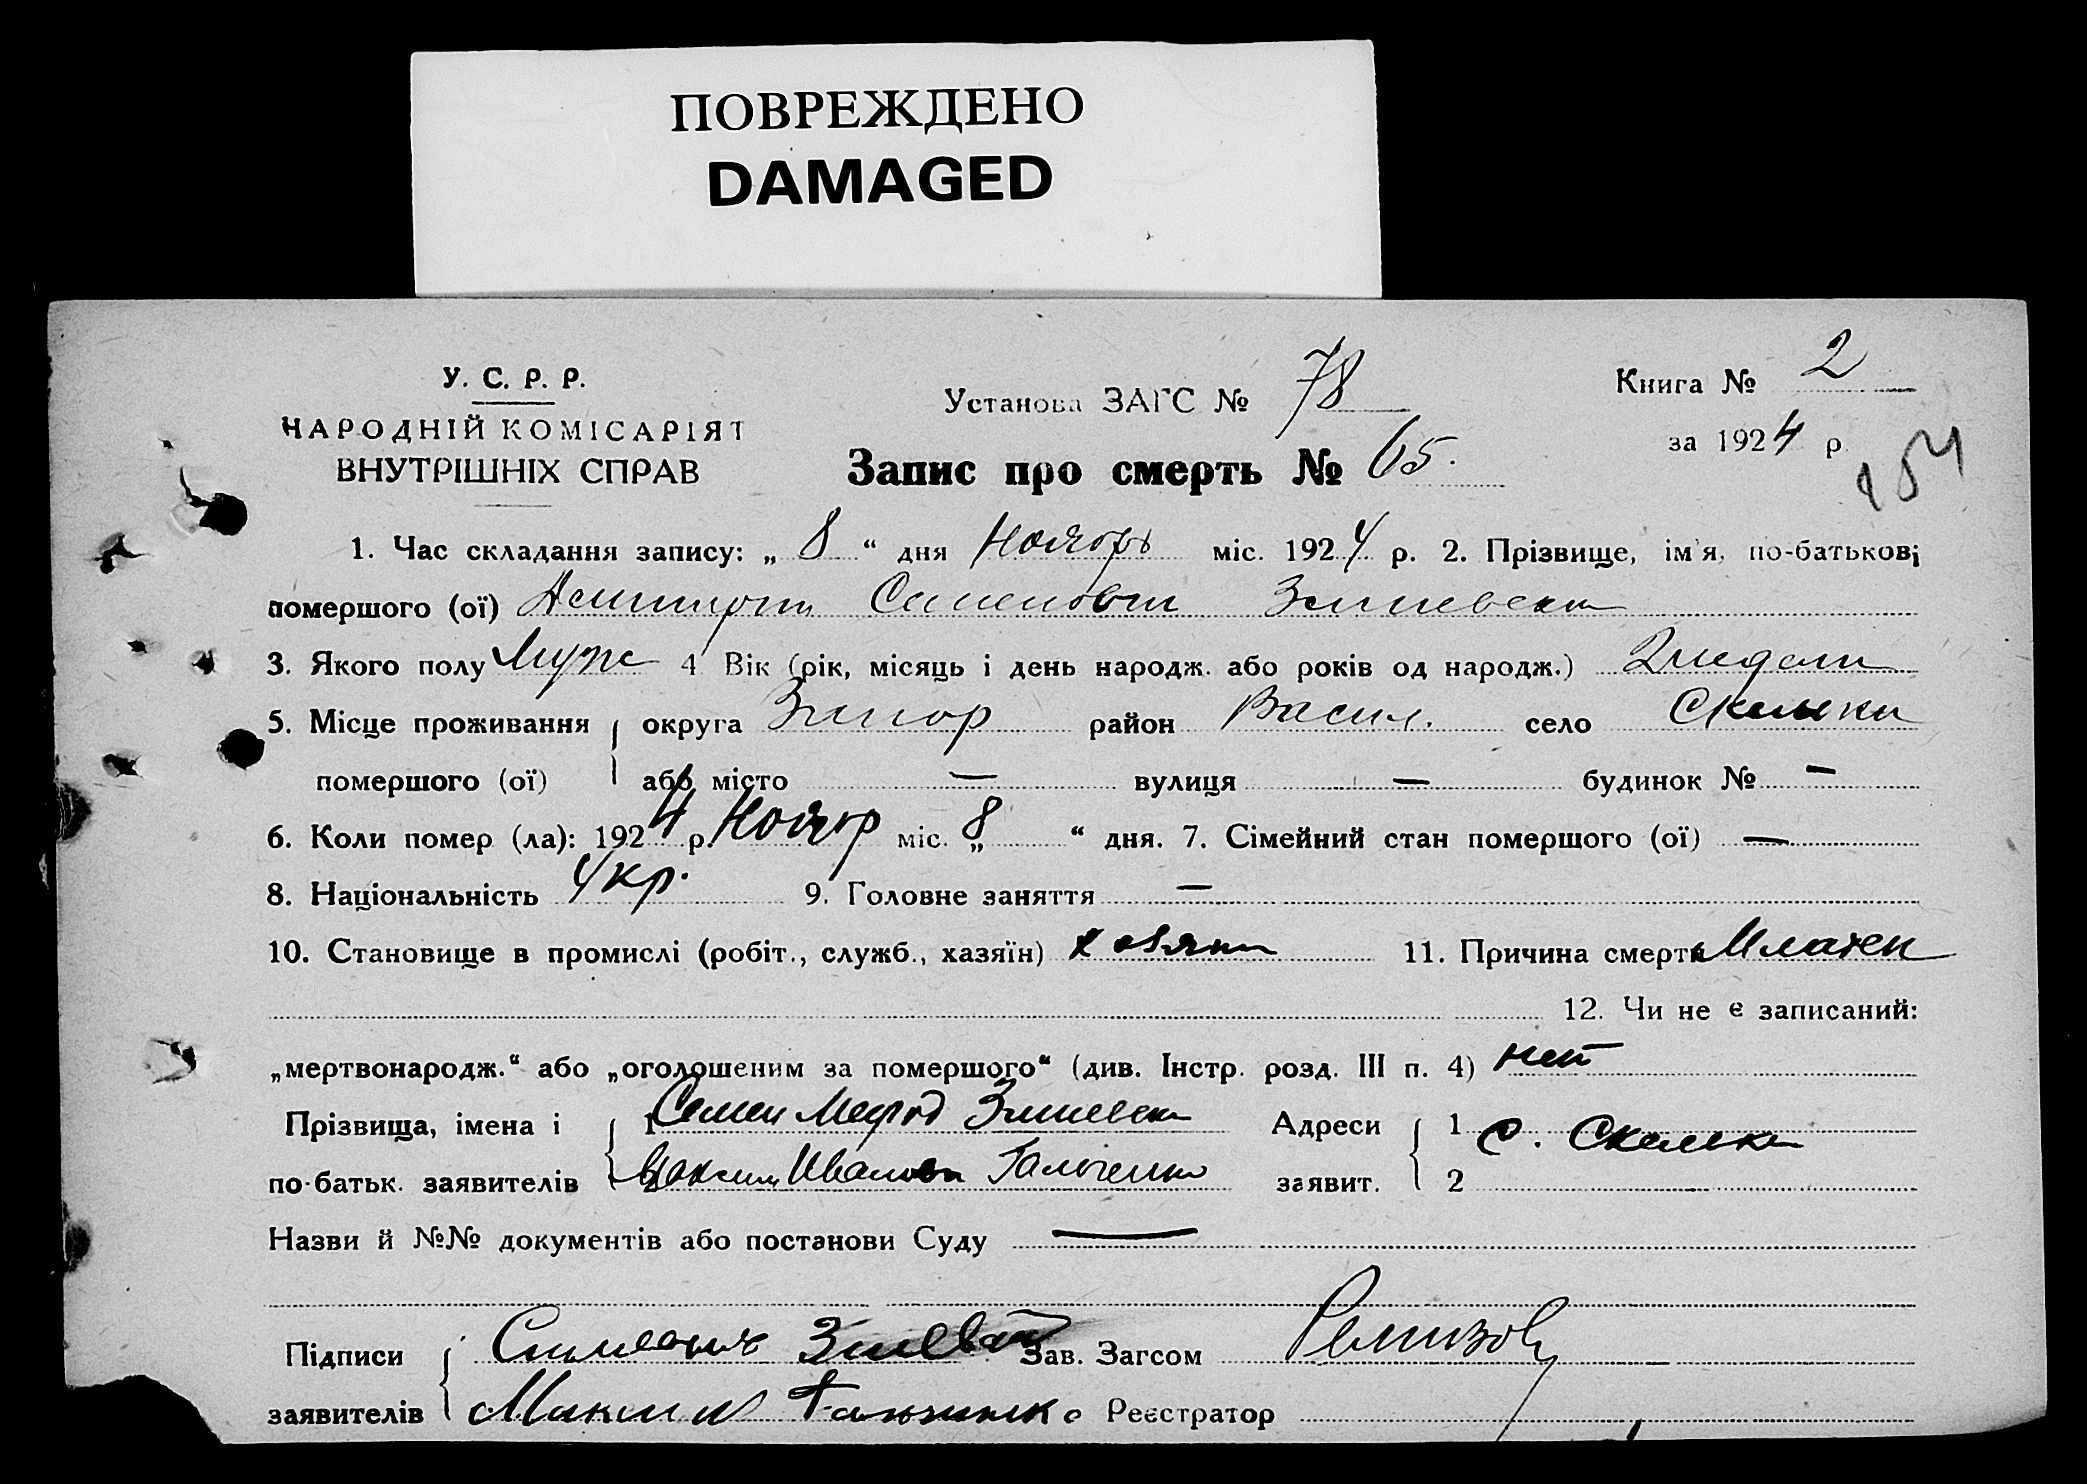 ПОВРЕЖДЕНО
DAMAGED
У. С. Р. Р.
НАРОДНІЙ КОМІСАРІЯТ
ВНУТРІШНІХ СПРАВ
Установа ЗАГС № 78
Книга № 2
за 1924 р
154
Запис про смерть № 65.
1. Час складання запису: „ 8 “ дня Ноябрь міс. 1924 р. 2. Прізвище, ім'я, по-батькові
помершого (ої) Семенович
3. Якого полу Муж 4 Вік (рік, місяць і день народж. або років од народж.) 2 недели
5. Місце проживання округа Запор район Васил. село Скельки
помершого (ої) або місто — вулиця — будинок № —
6. Коли помер (ла): 1924 р. Ноябр міс. „ 8 “ дня. 7. Сімейний стан помершого (ої) —
8. Національність Укр. 9. Головне заняття —
10. Становище в промислі (робіт., служб., хазяїн) 11. Причина смерти Младен
12. Чи не є записаний:
„мертвонародж.“ або „оголошеним за помершого“ (див. Інстр. розд. III п. 4) нет
Прізвища, імена і 1 Семен Мефод Адреси 1 с. Скельки
по-батьк. заявителів 2 Максим Иванов Гальченко заявит. 2
Назви й №№ документів або постанови Суду —
Підписи Зав. Загсом Ремизов
заявителів Максим Реєстратор